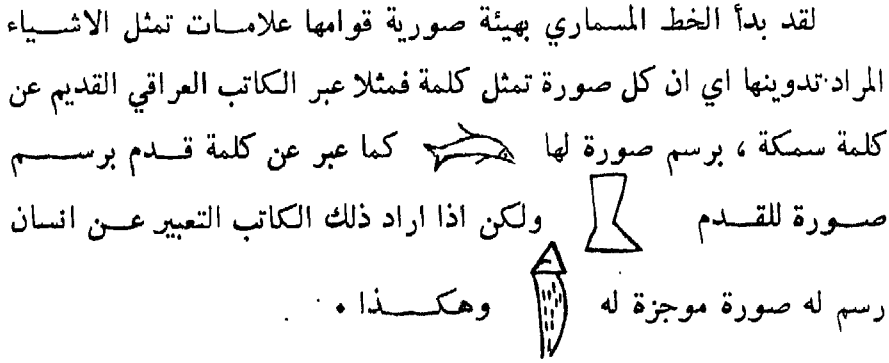 لقد بدأ الخط المسماري بهيئة صورية قوامها علامات تمثل الاشياء
المراد تدوينها اي ان كل صورة تمثل كلمة فمثلا عبر الكاتب العراقي القديم عن
كلمة سمكة ، برسم صورة لها كما عبر عن كلمة قدم برسم
صورة للقدم ولكن اذا اراد ذلك الكاتب التعبير عن انسان
رسم له صورة موجزة له وهكذا .